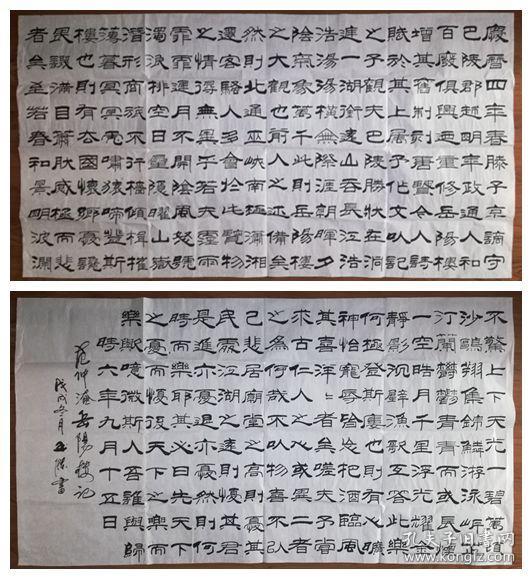 慶曆四年春滕子京謫守
巴陵郡越明年政通人和
百廢俱興迺重修岳陽樓
增其舊制刻唐賢今人詩
賦於其上屬予作文以記
之予觀夫巴陵勝狀在洞
庭一湖銜遠山吞長江浩
浩湯湯橫無際涯朝暉夕
陰氣象萬千此則岳陽樓
之大觀也前人之述備矣
然則北通巫峽南極瀟湘
遷客騷人多會於此覽物
之情得無異乎若夫霪雨
霏霏連月不開陰風怒號
濁浪排空日星隱曜山嶽
潛形商旅不行檣傾楫摧
薄暮冥冥虎嘯猿啼登斯
樓也則有去國懷鄉憂讒
畏譏滿目蕭然感極而悲
者矣至若春和景明波瀾
不驚上下天光一碧萬頃
沙鷗翔集錦鱗游泳岸芷
汀蘭鬱鬱青青而或長煙
一空皓月千里浮光耀金
靜影沉璧漁歌互答此樂
何極登斯樓也則有心曠
神怡寵辱皆忘把酒臨風
其喜洋洋者矣嗟夫予嘗
求古仁人之心或異二者
之為何哉不以物喜不以
己悲居廟堂之高則憂其
民處江湖之遠則憂其君
是進亦憂退亦憂然則何
時而樂耶其必曰先天下
之憂而憂後天下之樂而
樂歟噫微斯人吾誰與歸
時六年九月十五日
范仲淹岳陽樓記
戊戌冬月書
孔夫子旧书网
kongfz.com